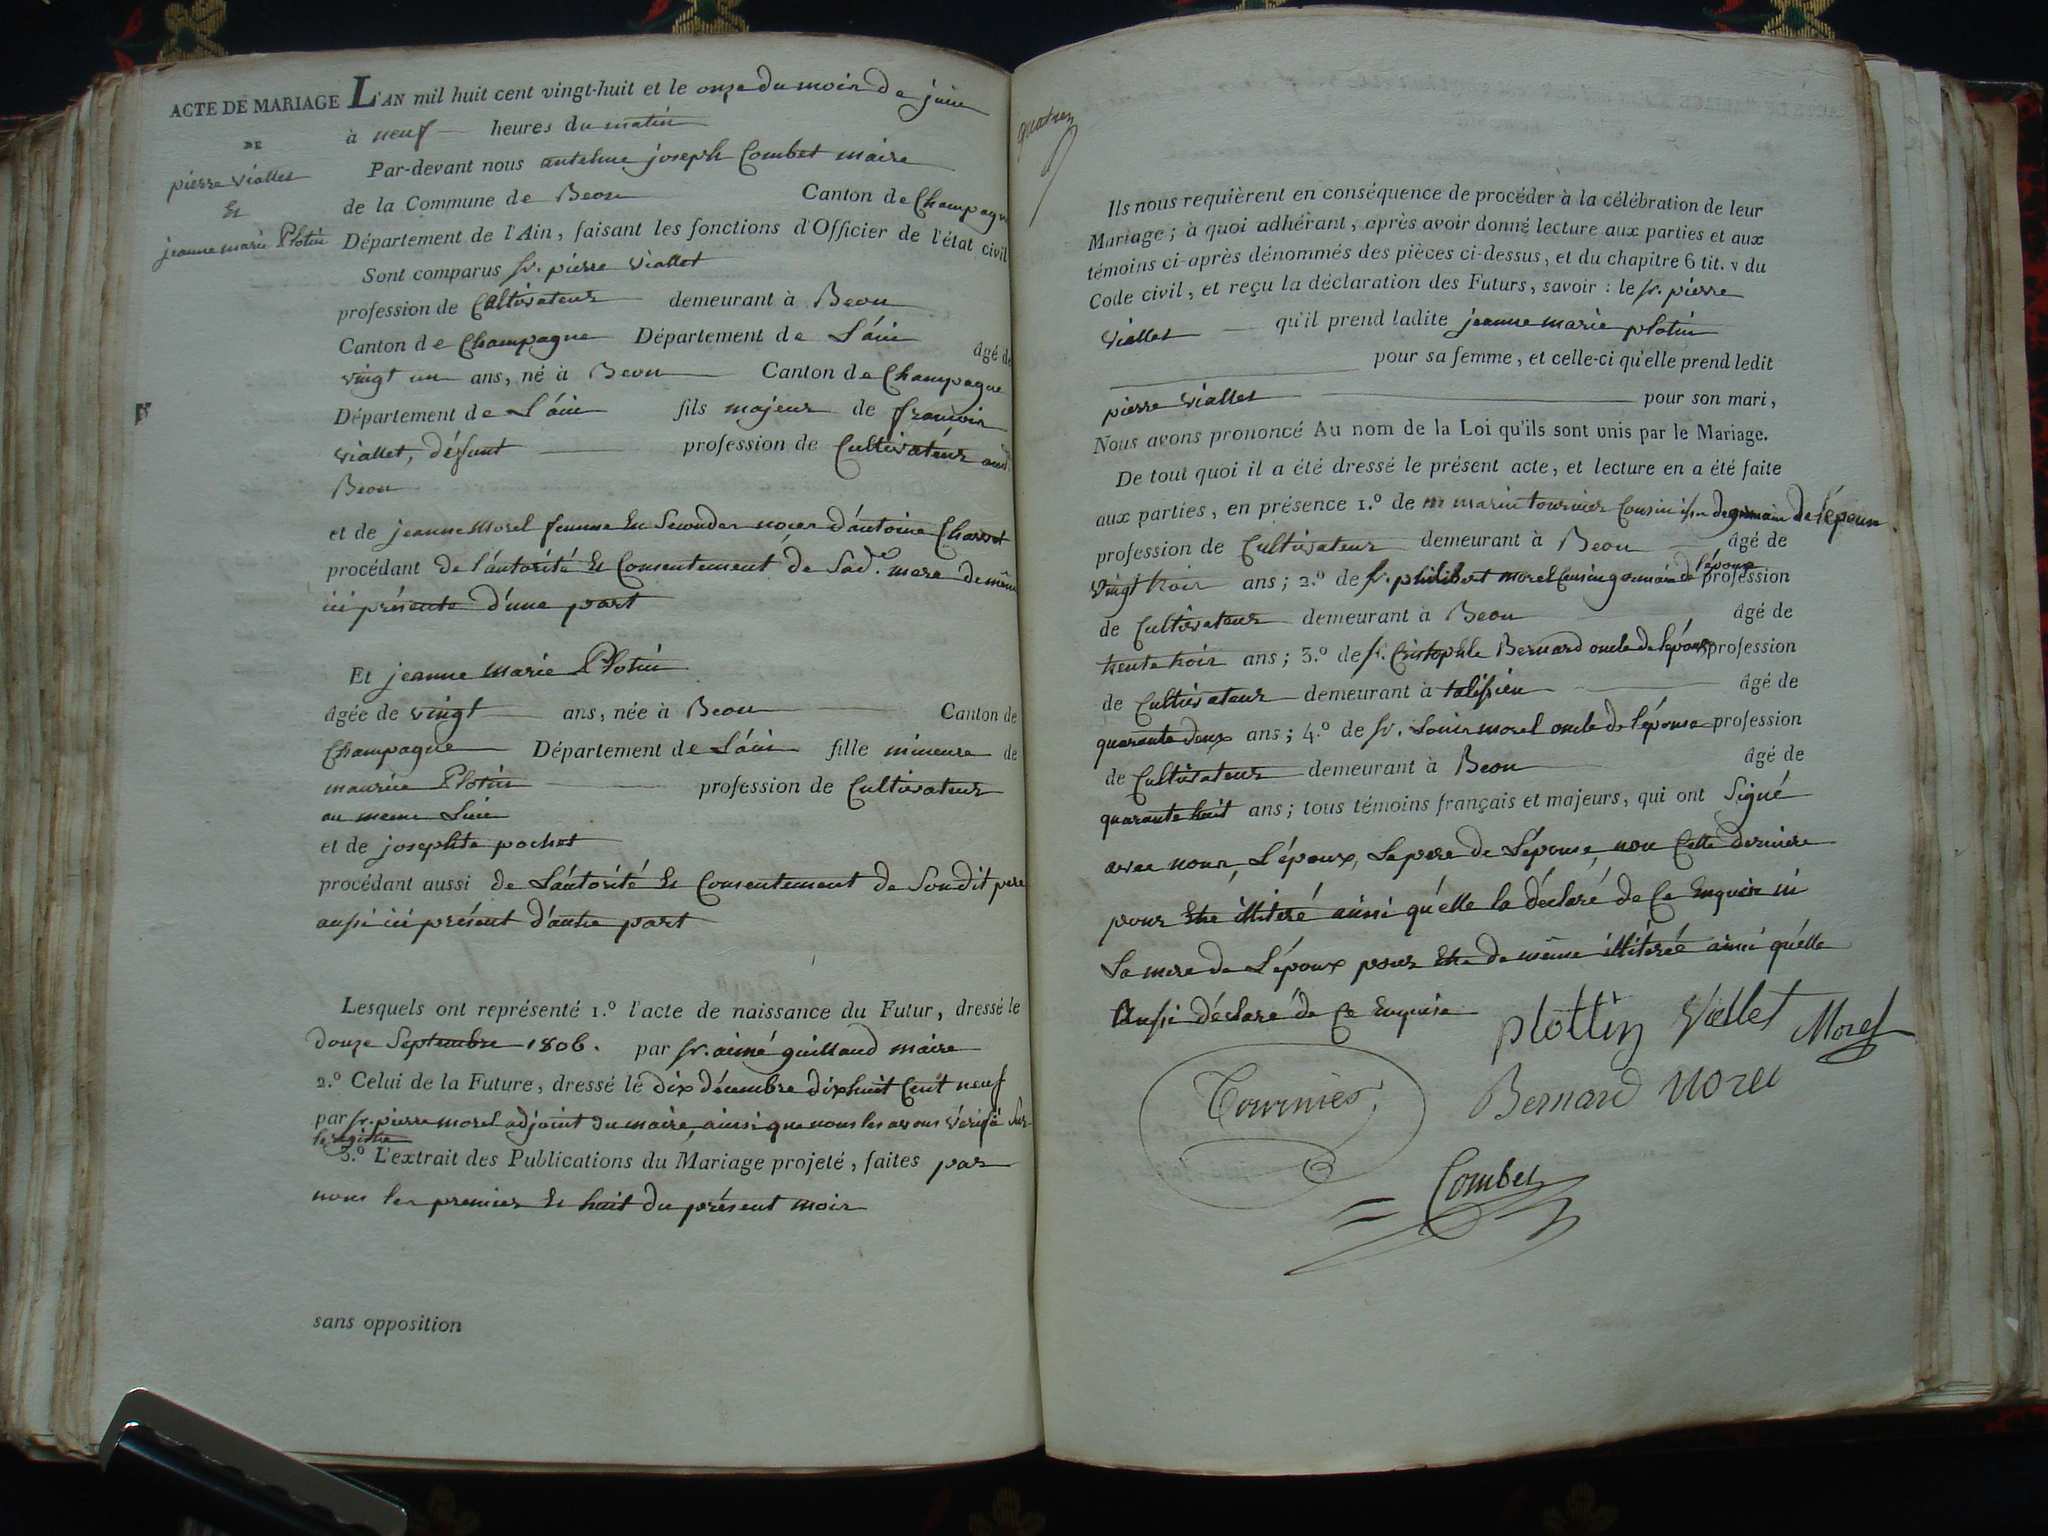 ACTE DE MARIAGE
DE
pierre viallet
Et
jeanne marie Plotin
L'AN mil huit cent vingt-huit et le onze du mois de juin
à neuf heures du matin
Par-devant nous antelme joseph Combet maire
de la Commune de Beon Canton de Champagne
Département de l'Ain, faisant les fonctions d'Officier de l'état civil
Sont comparus sr. pierre viallet
profession de Cultivateur demeurant à Beon
Canton de Champagne Département de L'ain âgé de
vingt un ans, né à Beon Canton de Champagne
Département de L'ain fils majeur de francois
viallet, défunt profession de Cultivateur aud.
Beon
et de jeanne Morel femme En Secondes noces d'antoine Charvet
procédant de l'autorité Et Consentement de Sad. mere de même
ici présente d'une part
Et jeanne marie Plotin
âgée de vingt ans, née à Beon Canton de
Champagne Département de L'ain fille mineure de
maurice Plotin profession de Cultivateur
au meme Lieu
et de josephte pochet
procédant aussi de L'autorité Et Consentement de Son dit pere
aussi ici présent d'autre part
Lesquels ont représenté 1.º l'acte de naissance du Futur, dressé le
douze Septembre 1806. par sr. aimé guilland maire
2.º Celui de la Future, dressé le dix décembre dix huit Cent neuf
par sr. pierre morel adjoint du maire, ainsi que nous les avons vérifié Sur
le registre
3.º L'extrait des Publications du Mariage projeté, faites par
nous les premier Et huit du présent mois
sans opposition
Ils nous requièrent en conséquence de procéder à la célébration de leur
Mariage; à quoi adhérant, après avoir donné lecture aux parties et aux
témoins ci-après dénommés des pièces ci-dessus, et du chapitre 6 tit. v du
Code civil, et reçu la déclaration des Futurs, savoir : le sr. pierre
viallet qu'il prend ladite jeanne marie plotin
pour sa femme, et celle-ci qu'elle prend ledit
pierre viallet pour son mari,
Nous avons prononcé Au nom de la Loi qu'ils sont unis par le Mariage.
De tout quoi il a été dressé le présent acte, et lecture en a été faite
aux parties, en présence 1.º de marin tournier Cousin germain de l'époux
profession de Cultivateur demeurant à Beon âgé de
vingt trois ans; 2.º de sr. philibert morel Cousin germain de l'époux profession
de Cultivateur demeurant à Beon âgé de
trente trois ans; 3.º de sr. Cristophle Bernard oncle de l'époux profession
de Cultivateur demeurant à talissieu âgé de
quarante deux ans; 4.º de sr. Louis morel oncle de l'épouse profession
de Cultivateur demeurant à Beon âgé de
quarante huit ans; tous témoins français et majeurs, qui ont Signé
avec nous, L'époux, Le pere de L'épouse, non Cette derniere
pour Etre illitéré ainsi qu'elle la déclaré de Ce Enquise ni
La mere de L'époux pour Etre de même illitérée ainsi qu'elle
Aussi déclaré de Ce Enquise
plottin Viallet Morel
Tournier Bernard morel
Combet